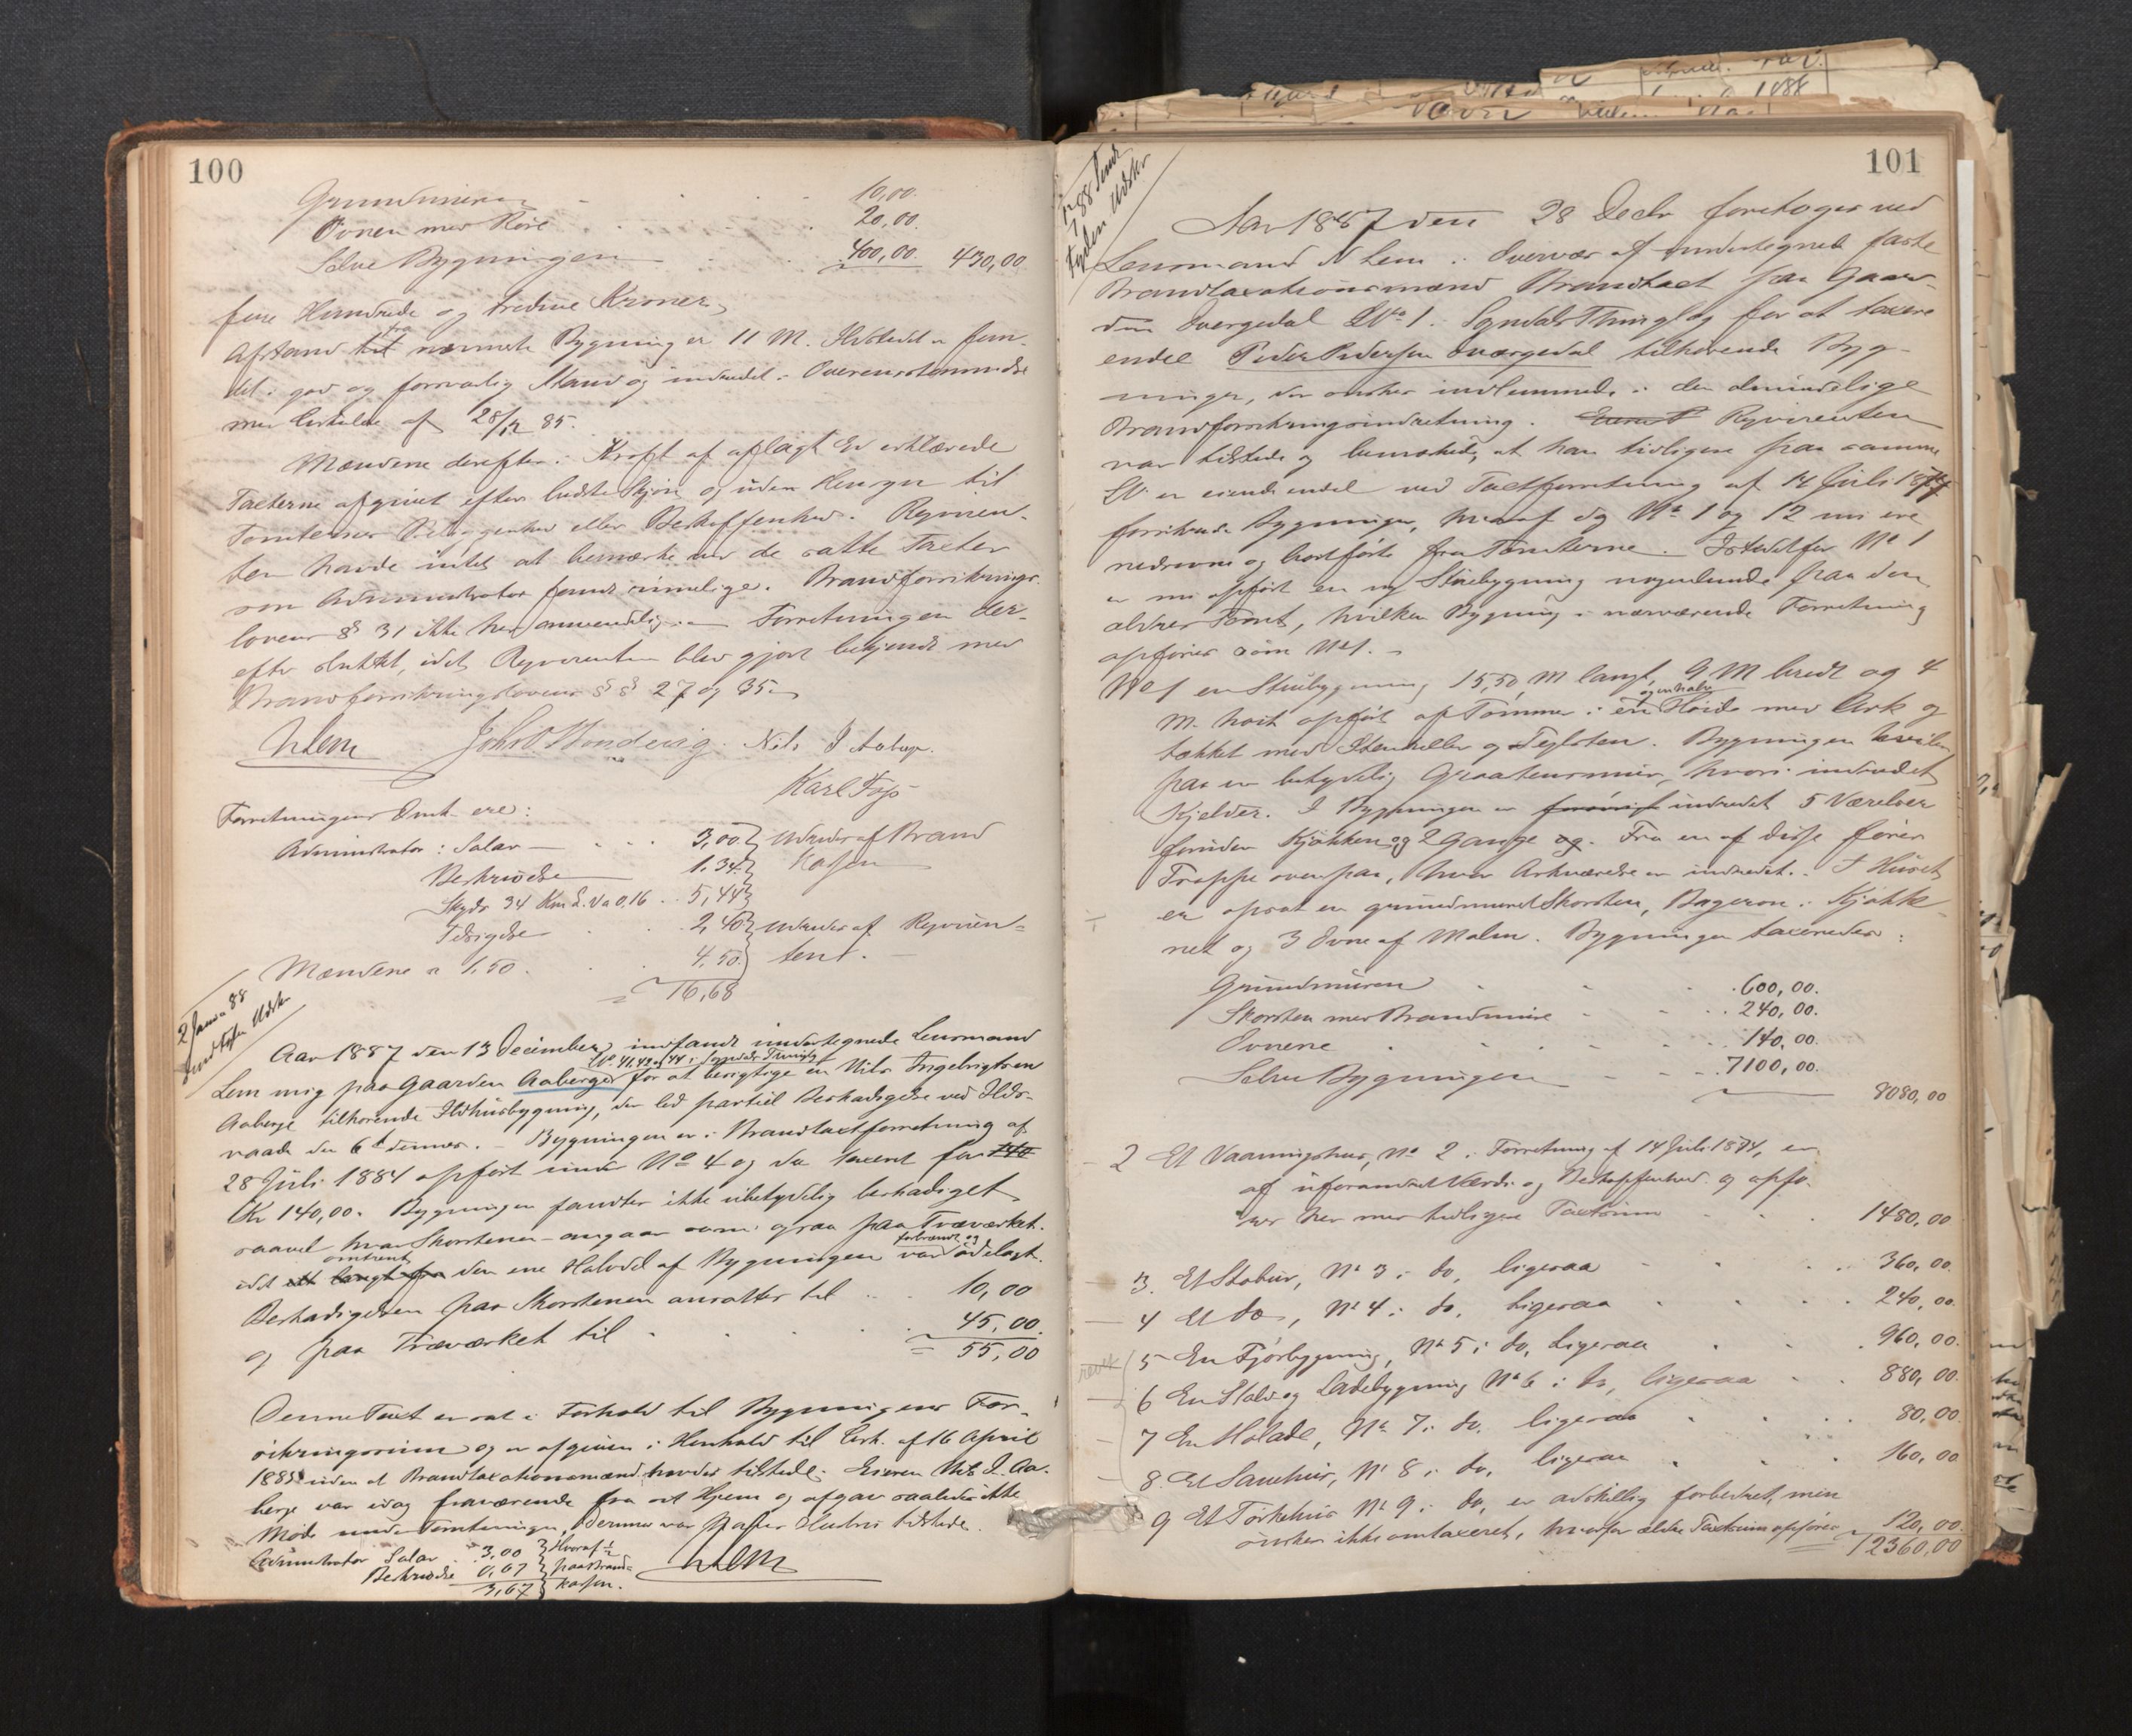 100
Grundmuren 10,00.
Ovnen med Rör 20,00.
Selve Bygningen 400,00. 430,00
fire Hundrede og tredive Kroner
Afstand til fra nærmeste Bygning er 11 M. Ildstedet er fun-
det i god og forsvarlig Stand og indredet i Overensstemmelse
med Cirkulære af 28/12 85.
Mændene derefter i Kraft af aflagt Ed erklærede
Taxterne afgivet efter bedste Skjøn og uden Hensyn til
Tomternes Beliggenhed eller Beskaffenhed. Rekviren-
ten havde intet at bemærke ved de satte Taxter
som Administrator fandt rimelige. Brandforsikrings-
lovens § 31 ikke her anvendelig. Forretningen der-
efter sluttet, idet Rekvirenten blev gjort bekjendt med
Brandforsikringslovens §§ 27 og 35.
N Lem Johs O. Hondevig. Nils I Aaberge.
Karl Foss
Forretningens Omk. ere:
Administrator: Salær 3,00 udredes af Brand
Beskrivelse 1.34 Kassen
Skyds 34 Km L. V a 0,16 5,44
Tilsigelse 2,40 udredes af Rekviren-
Mændene a 1,50. 4,50. ten.
16,68
2 Janu. 88
Udskr.
Aar 1887 den 13 December indfandt undertegnede Lensmand
L.No. 41, 42 og 44 i Sogndals Thinglag
Lem mig paa Gaarden Aaberge for at besigtige en Nils Ingebrigtsen
Aaberge tilhørende Ildhusbygning, der led partiel Beskadigelse ved Ilds-
vaade den 6te dennes. Bygningen er i Brandtaxtforretning af
28 Juli 1884 opført under No 4 og da taxeret for 140
Kr 140,00. Bygningen fandtes ikke ubetydelig beskadiget
saavel hvad Skorstenen angaar som ogsaa paa Træværket.
omtrent forbrændt og
idet den ene Halvdel af Bygningen var ødelagt.
Beskadigelsen paa Skorstenen ansattes til 10,00
og paa Træværket til 45,00.
= 55,00
Denne Taxt er sat i Forhold til Bygningens For-
sikringssum og er afgiven i Henhold til Cirk. af 16 April
1885 uden at Brandtaxationsmænd havdes tilstede. Eieren Nils I. Aa-
berge var idag fraværende fra sit Hjem og afgav saaledes ikke
Møde under Forretningen, derimod var tilstede.
Administrator Salær 3,00 Hvoraf ½
Beskrivelse 0,67 paa Brand-
3,67 Kassen.
N Lem
101
88 Sendt
Udskr.
Aar 1887 den 28 Decbr foretoges ved
Lensmand N Lem i Overvær af undertegnede faste
Brandtaxationsmænd Brandtaxt paa Gaar-
den Qvergedal LNo 1 i Sogndals Thinglag for at taxere
endel Peder Pedersen Qvergedal tilhørende Byg-
ninger, der ønskes indlemmede i den almindelige
Brandforsikringsindretning. Rekvirenten
var tilstede og bemærkede, at han tidligere paa samme
LN er eiende endel ved Taxtforretning af 14 Juli 1874
forsikrede Bygninger, hvoraf dog No 1 og 12 nu ere
nedrevne og bortførte fra Tomterne. Istedetfor No 1
er nu opført en ny Stuebygning nogenlunde paa den
ældres Tomt, hvilken Bygning i nærværende Forretning
opføres som No 1.
No 1 en Stuebygning 15,50 M langt, 9 M bredt og 4
og en halv
M. høit opført af Tømmer i en Høide med Ark og
tækket med Stenheller og Teglsten. Bygningen hviler
paa en betydelig Graastensmur, hvori indredet
Kjelder. I Bygningen er forøvrigt indredet 5 Værelser
foruden Kjøkken og 2 Gange og. Fra en af disse fører
Trappe ovenpaa, hvor Arkværelse er indredet. I Huset
er opsat en grundmuret Skorsten, Bagerovn i Kjøkke-
net og 3 Ovne af Malm. Bygningen taxeredes:
Grundmuren 600,00.
Skorsten med Brandmure 240,00.
Ovnene 140,00.
Selve Bygningen 7100,00.
8080,00
2 Et Vaaningshus, No 2 i Forretning af 14 Juli 1874, er
af uforandret Værdi og Beskaffenhed og opfø-
res her med tidligere Taxtsum 1480,00
3. Et Stabur, No 3 i do, ligesaa 360,00.
4 Et do, No 4 i do, ligesaa 240,00.
revet
5 En Fjøsbygning, No 5 i do, ligesaa 960,00.
6 En Stald og Ladebygning No 6 i do, ligesaa 880,00.
7 En Hølade, No 7 i do, ligesaa 80,00.
8. Et Sauehus, No 8 i do, ligesaa 160,00
9 Et Tørkehus No 9 i do, er adskillig forbedret, men
ønskes ikke omtaxeret, hvorfor ældre Taxtsum opføres 120,00.
12360,00